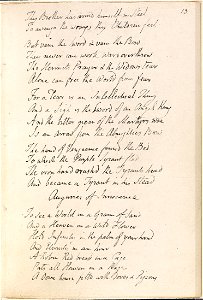 13
Thy Brother has armd himself in Steel
To avenge the wrongs thy Children feel
But vain the Sword & vain the Bow
They never can work Wars overthrow
The Hermits Prayer & the Widows tear
Alone can free the World from fear
For a Tear is an Intellectual Thing
And a Sigh is the Sword of an Angel King
And the bitter groan of the Martyrs woe
Is an Arrow from the Almighties Bow
The hand of Vengeance found the Bed
To which the Purple Tyrant fled
The iron hand crushd the Tyrants head
And became a Tyrant in his Stead
Auguries of Innocence
To see a World in a Grain of Sand
And a Heaven in a Wild Flower
Hold Infinity in the palm of your hand
And Eternity in an hour
A Robin Red breast in a Cage
Puts all Heaven in a Rage
A Dove house filld with Doves & Pigeons